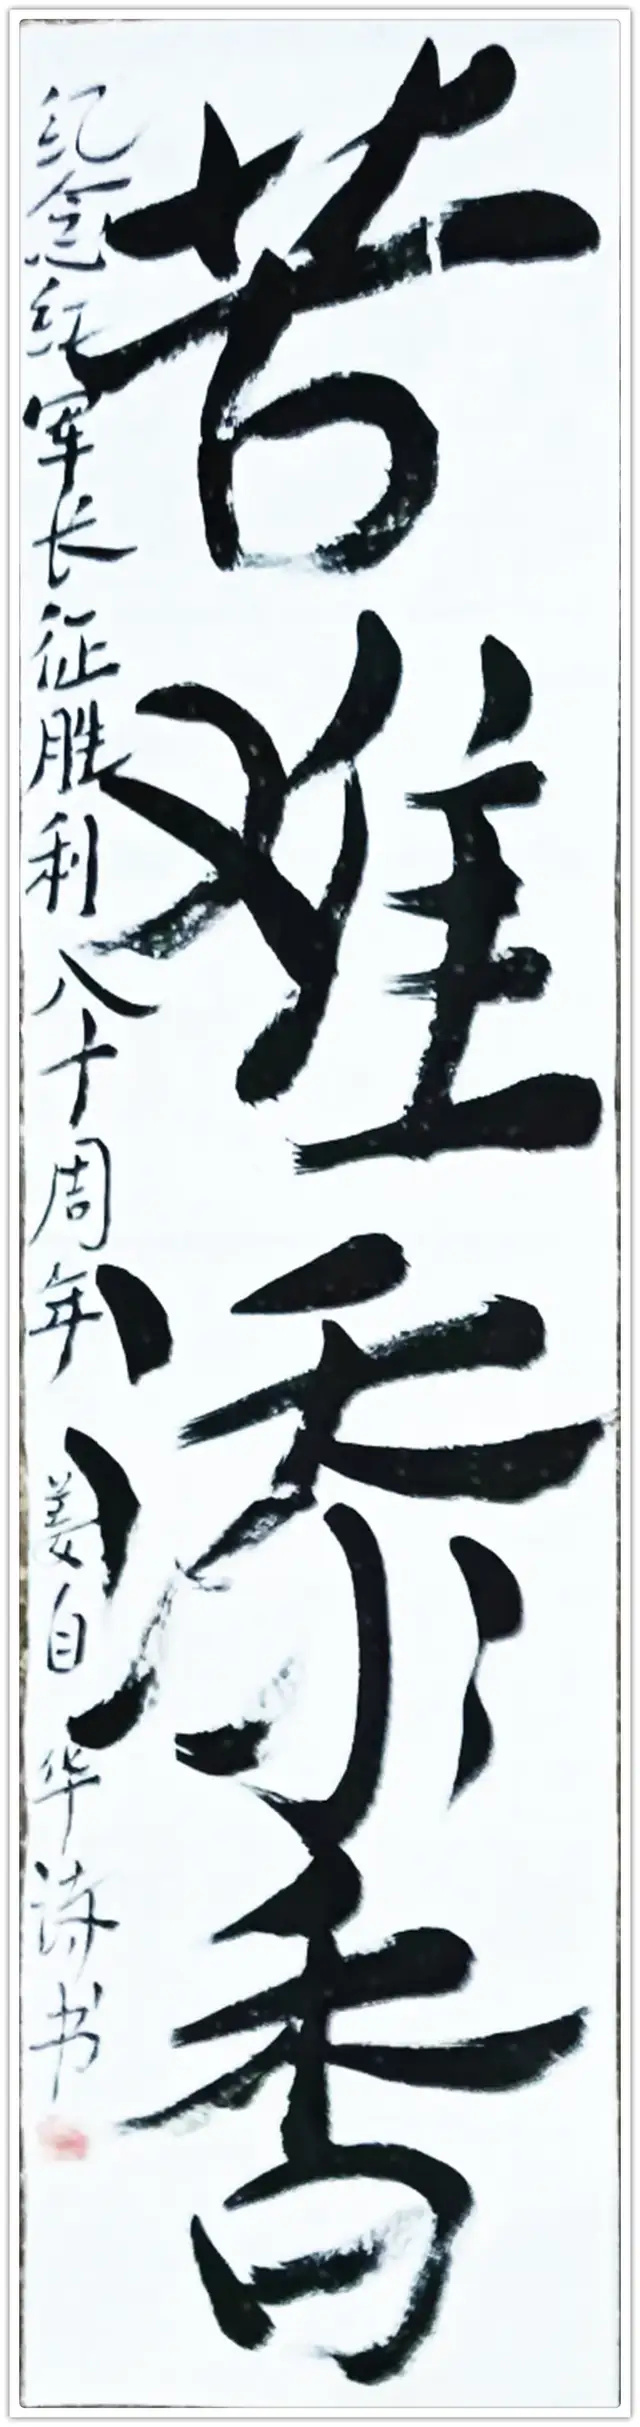 苦难添香
纪念红军长征胜利八十周年 姜自华诗书